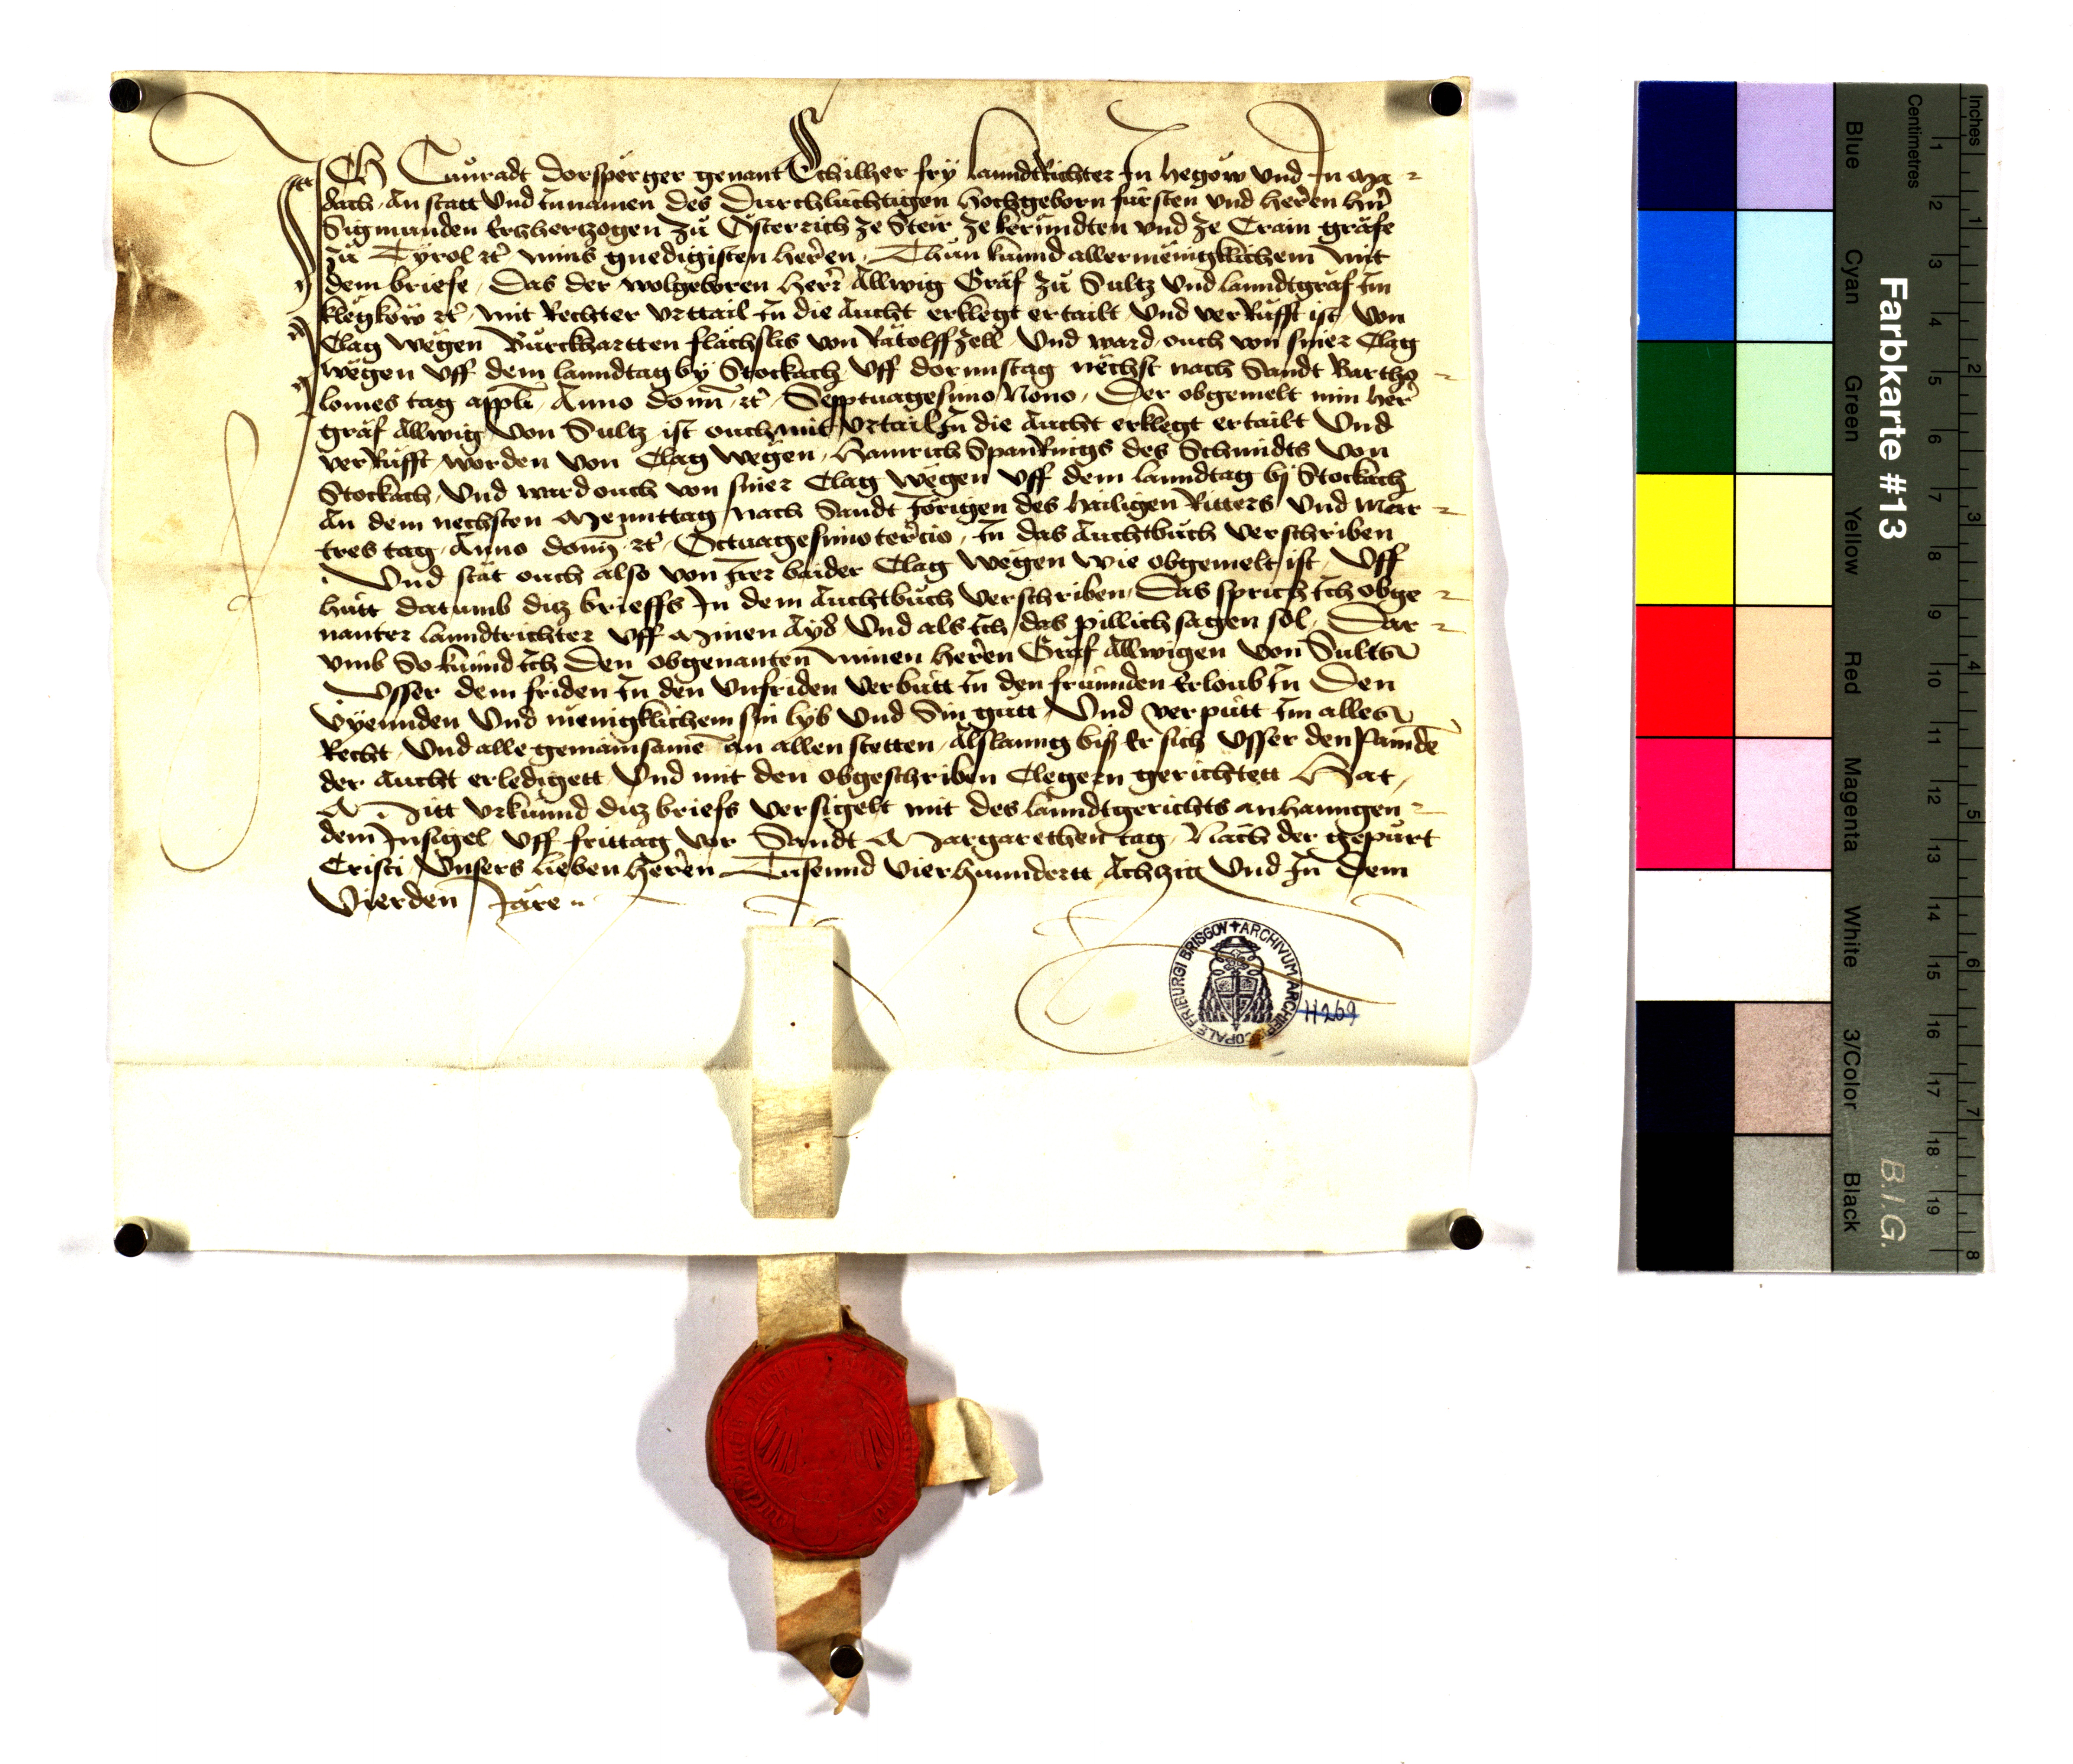 Ich Cůnradt dorsperger genant Schilher fry lanndtRichter In hegöw vnd In Ma-
dach, An statt vnd In namen des Durchlüchtigen hochgeborn fürsten vnd herren hrn
Sigmunden Ertzhertzogen zů Österrich ze Steir ze kerůndten vnd ze Crain gräfe
zů Tyrol etc mins gnedigisten herren, Thůn kunnd allermenigklichem mit
dem briefe, Das der wolgeboren herr Allwig Gräf zů Sultz vnd lanndtgräf Im
klegköw etc mit Rechter vrttail In die Aucht erklegt ertailt, vnd verRůfft ist, von
Clag wegen Bůrckhartten flächslis von Rätolffzell, vnd ward ouch von siner Clag
wegen vff dem lanndtag by Stockach vff dornnstag nechst nach Sandt Bartho-
lomes tag appli, Anno domi etc Septuagesimo Nono, Der obgemelt min herr
gräf Allwig von Sultz ist ouch mit vrtail In die Aucht erklegt ertailt vnd
verRůfft worden von Clag wegen, Hainrich des Schmidts von
Stockach, vnd ward ouch von siner Clag wegen vff dem lanndtag bj Stockach
An dem nechsten Menntag nach Sandt Jörigen des hailigen Ritters vnd Mar-
tres tag, Anno domi etc Octuagesimo tercio, In das Auchtbůch verschriben
Vnd stät ouch also von Irer baider Clag wegen wie obgemelt ist, Vff
hütt datumb ditz brieffs In dem Auchtbůch verschriben, Das sprich Ich obge-
nanter lanndtrichter vff Minen Ayd vnd als Ich das pillich sagen sol, Dar-
vmb So künnd Ich Den obgenanten minen herren Gräf Allwigen von Sultz
Vsser dem friden In den vnfriden verbütt In den fründen Erloub In Den
vyennden vnd menigklichem sin lyb vnd Sin gůtt, Vnd verpütt Im alles
Recht, vnd alle gemainsame an allen stetten, Alslanng biß Er sich vsser den panden
der Aucht erledigett, vnd mit den obgeschriben Clegern gerichtett Hat,
Mitt vrkünnd ditz briefs versigelt mit des lanndtgerichts anhanngen-
dem Insigel, vff frittag vor Sandt Margarethen tag, Nach der gepürt
Cristi, vnsers lieben herren Tusennd vierhunndertt Achzig vnd In Dem
Vierden Jare
ARCHIVUM ARCHIEPISCOPALE FRIBURGI BRISGOV
H 269
Farbkarte #13
B.I.G.
Blue Cyan Green Yellow Red Magenta White 3/Color Black
Centimetres 1 2 3 4 5 6 7 8 9 10 11 12 13 14 15 16 17 18 19
Inches 1 2 3 4 5 6 7 8